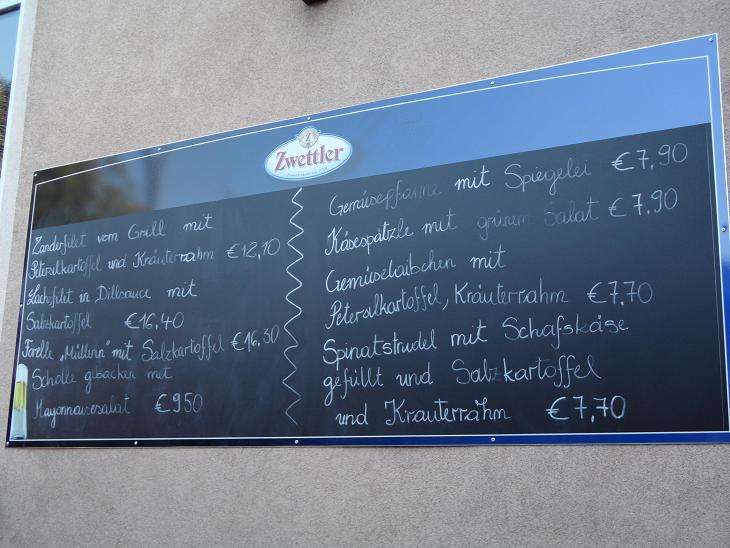 Zwettler
Zanderfilet vom Grill mit
Petersilkartoffel und Kräuterrahm €12,10
Lachsfilet in Dillsauce mit
Salzkartoffel €16,40
Forelle „Müllerin" mit Salzkartoffel €16,30
Scholle gebacken mit
Mayonnaisesalat €950
Gemüsepfanne mit Spiegelei €7,90
Käsespätzle mit grünem Salat €7,90
Gemüselaibchen mit
Petersilkartoffel, Kräuterrahm €7,70
Spinatstrudel mit Schafskäse
gefüllt und Salzkartoffel
und Kräuterrahm €7,70